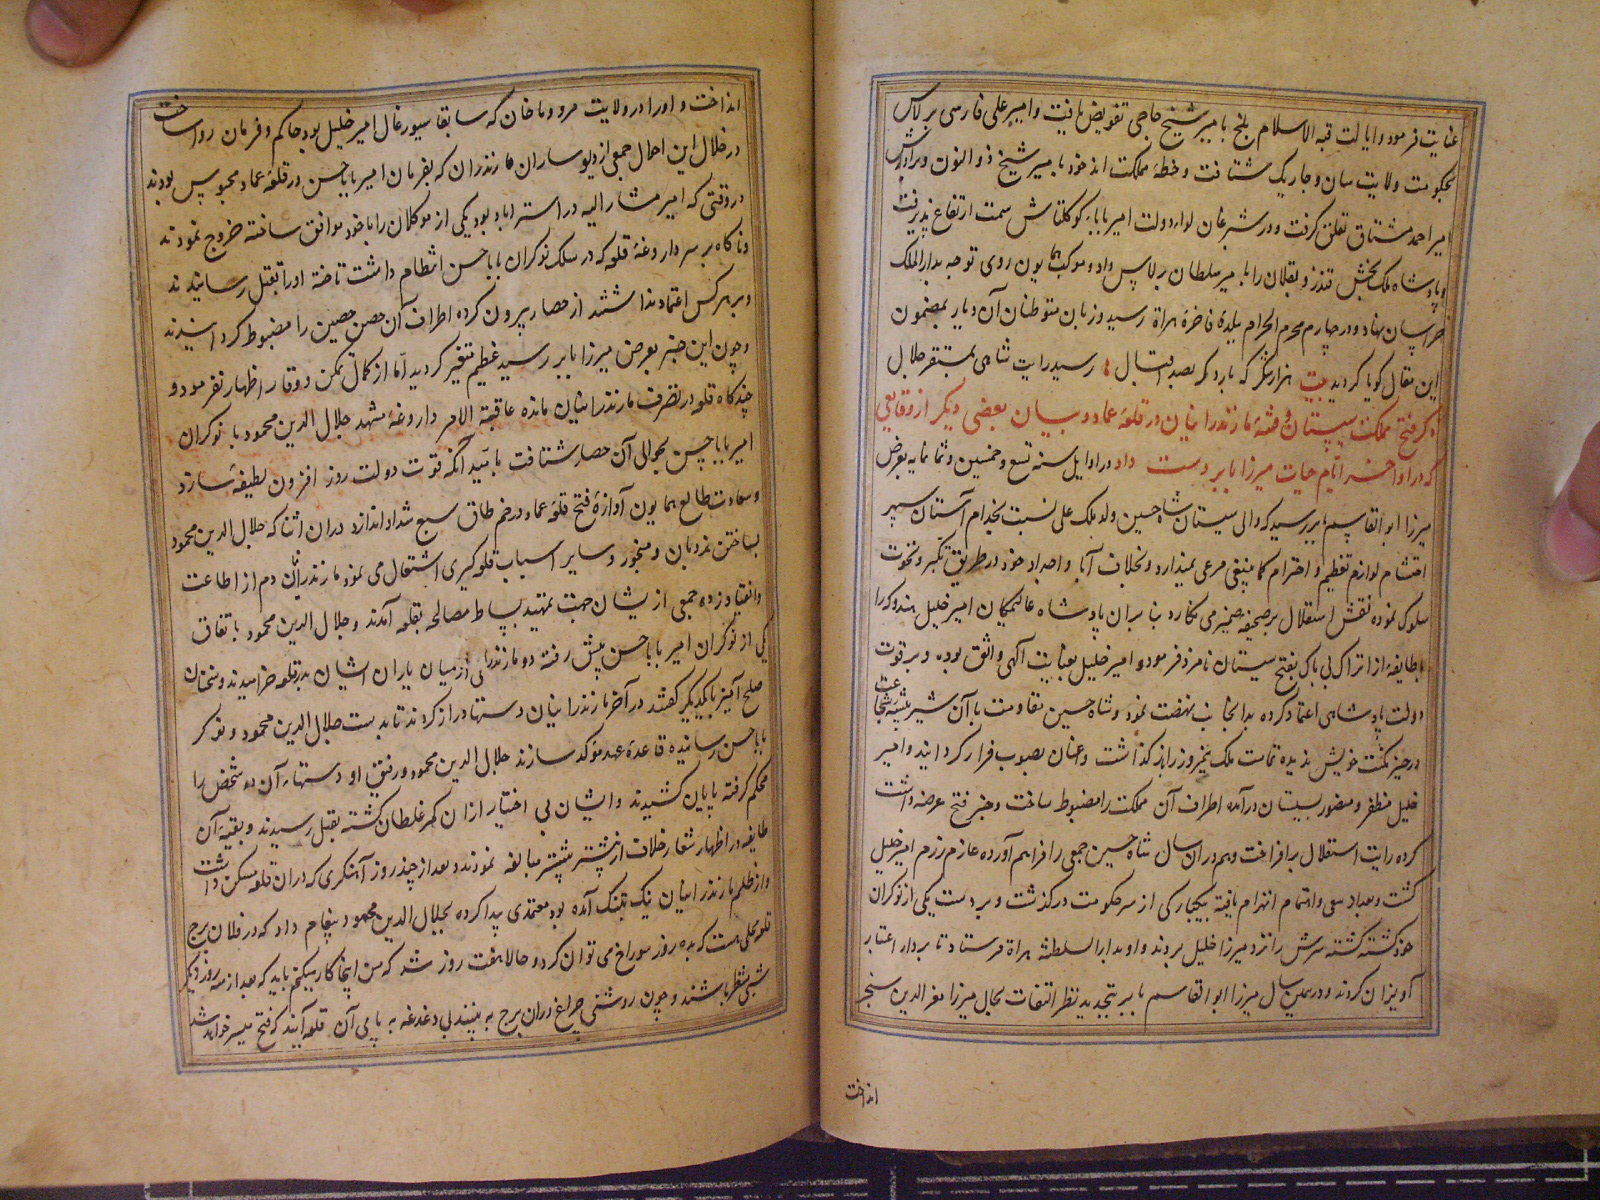 عنایت فرمود و ایالت قبه الاسلام بلخ بامیر شیخ حاجی تفویض یافت و امیر علی فارسی برلاس
بحکومت ولایت سان و چاریک شتافت و خطهٔ مملکت اندخود بامیر شیخ ذو النون و برادرش
امیر احمد مشتاق تعلق گرفت و در شبرغان لواء دولت امیر بابای کوکلتاش سمت ارتفاع پذیرفت
و پادشاه ملک بخش قندز و بقلان را بامیر سلطان برلاس داد و موکب همایون روی توجه بدار الملک
خراسان نهاد و در چهارم محرم الحرام ببلدهٔ فاخرهٔ هراة رسید و زبان متوطنان آن دیار بمضمون
این مقال کویا کردید بیت هزار شکر که بار دکر بصد اقبال رسید رایت شاهی بمستقر جلال
ذکر فتح مملکت سیستان و فتنهٔ مازندرانیان در قلعهٔ عماد و بیان بعضی دیکر از وقایعی
که در اواخر ایام حیات میرزا بابر دست داد در اوایل سنه تسع و خمسین و ثمانمایه بعرض
میرزا ابو القاسم بابر رسید که والی سیستان شاه حسین ولد ملک علی نسبت بخدام آستان سپهر
احتشام لوازم تعظیم و احترام کما ینبغی مرعی نمیدارد و بخلاف آبا و اجداد خود در طریق تکبر و نخوت
سلوک نموده نقش استقلال بر صحیفه ضمیر می نکارد بنا بران پادشاه عالیمکان امیر خلیل هندوکه را
با طایفهٔ از اتراک بی باک بفتح سیستان نامزد فرمود و امیر خلیل بعنایت الهی واثق بوده و بر قوت
دولت پادشاهی اعتماد کرده بدانجانب نهضت نمود و شاه حسین مقاومت با آن شیر بیشهٔ شجاعت
در حیز مکنت خویش ندیده تمامت ملک نیمروز را باز کذاشت و عنان بصوب فرار کردانید و امیر
خلیل مظفر و منصور بسیستان درآمده اطراف آن مملکت را مضبوط ساخت و خبر فتح عرضه داشت
کرده رایت استقلال برافراخت و هم دران سال شاه حسین جمعی را فراهم آورده عازم رزم امیر خلیل
کشت و بعد از سعی و اهتمام انهزام یافته بیکبارکی از سر حکومت درکذشت و بر دست یکی از نوکران
خود کشته کشته سرش را نزد میرزا خلیل بردند و او بدار السلطنه هراة فرستاد تا بر دار اعتبار
آویزان کردند و در همین سال میرزا ابو القاسم بابر بتجدید نظر التفات بحال میرزا معز الدین سنجر
انداخت
انداخت و او را در ولایت مرو و ماخان که سابقا سیورغال امیر خلیل بود حاکم و فرمان روا ساخت
در خلال این احوال جمعی از دیوساران مازندران که بفرمان امیر بابا حسن در قلعهٔ عماد محبوس بودند
در وقتی که امیر مشار الیه در استراباد بود یکی از موکلان را با خود موافق ساخته خروج نمودند
و ناکاه بر سر داروغهٔ قلعه که در سلک نوکران بابا حسن انتظام داشت تاخته او را بقتل رسانیدند
و بر هر کس اعتماد نداشتند از حصار بیرون کرده اطراف آن حصن حصین را مضبوط کردانیدند
و چون این خبر بعرض میرزا بابر رسید عظیم متغیر کردید اما از کمال تمکن و وقار اظهار نفرمود و
چندکاه قلعه در تصرف مازندرانیان مانده عاقبة الامر داروغهٔ مشهد جلال الدین محمود با نوکران
امیر بابا حسن بحوالی آن حصار شتافت بامید آنکه قوت دولت روز افزون لطیفهٔ سازد
و سعادت طالع همایون آوازهٔ فتح قلعهٔ عماد در خم طاق سبع شداد اندازد دران اثنا که جلال الدین محمود
بساختن نردبان و منجور و سایر اسباب قلعه کیری اشتغال می نمود مازندرانیان دم از اطاعت
و انقیاد زده جمعی از یشان جهت تمهید بساط مصالحه بقلعه آمدند و جلال الدین محمود باتفاق
یکی از نوکران امیر بابا حسن پیش رفته دو مازندرانی از میان یاران ایشان بدر قلعه خرامیدند و سخنان
صلح آمیز با یکدیکر کفتند در آخر مازندرانیان دستها دراز کردند تا بدست جلال الدین محمود و نوکر
بابا حسن رسانیده قاعدهٔ عهد موکد سازند جلال الدین محمود و رفیق او دستهاء آن دو شخص را
محکم کرفته بپایان کشیدند و ایشان بی اختیار ازان کمر غلطان کشته بقتل رسیدند و بقیهٔ آن
طایفه در اظهار شعار خلاف از پیشتر بیشتر مبالغه نمودند و بعد از چند روز آهنکری که دران قلعه مسکن داشت
و از ظلم مازندرانیان نیک بتنک آمده بود معتمدی پیدا کرده بجلال الدین محمود پیغام داد که در فلان برج
قلعه محلی هست که بده روز سوراخ می توان کرد و حالا هفت روز شد که من اینجا کار میکنم باید که بعد از سه روز دیکر
شبی منتظر باشند و چون روشنی چراغ دران برج به بینند بی دغدغه به پای آن قلعه آیند که فتح میسر خواهد شد